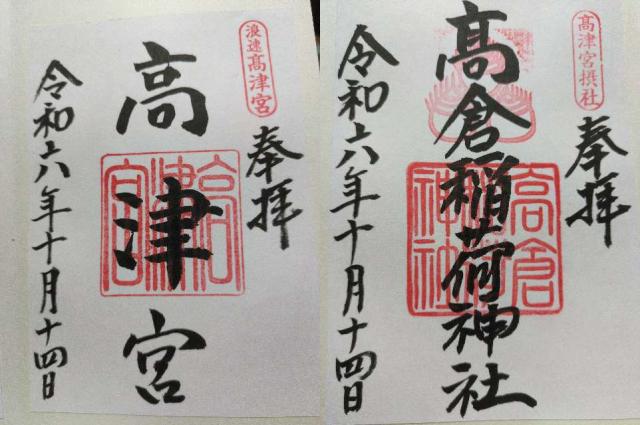 浪速高津宮
奉拝
高津宮
高津宮
令和六年十月十四日
髙津宮摂社
奉拝
髙倉稲荷神社
高倉稲荷神社
令和六年十月十四日